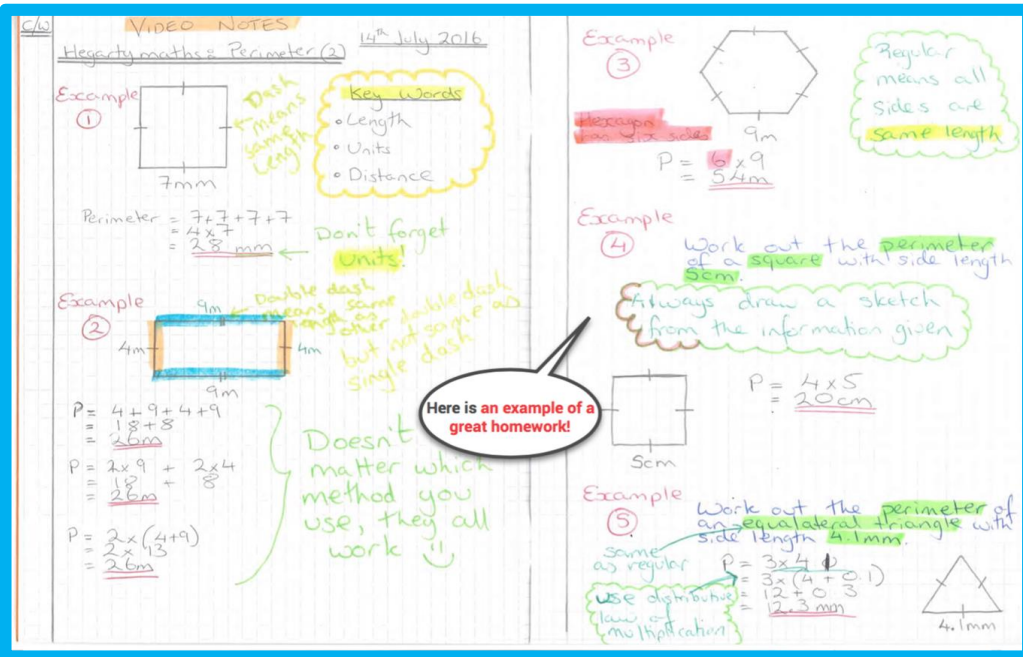 C/W
VIDEO NOTES
Hegartymaths: Perimeter (2)
14th July 2016
Example
1
7mm
Dash
means
same
length
Key Words
• Length
• Units
• Distance
Perimeter = 7+7+7+7
= 4x7
= 28 mm
Don't forget
units!
Example
2
9m
4m
4m
9m
Double dash
means same
length as
other double dash
but not same as
single dash
P = 4+9+4+9
= 18+8
= 26m
P = 2x9 + 2x4
= 18 + 8
= 26m
P = 2x(4+9)
= 2x 13
= 26m
Doesn't
matter which
method you
use, they all
work
Here is an example of a
great homework!
Example
3
Hexagon
has six sides
9m
P = 6x9
= 54m
Regular
means all
sides are
same length
Example
4
Work out the perimeter
of a square with side length
5cm.
Always draw a sketch
from the information given
5cm
P = 4x5
= 20cm
Example
5
Work out the perimeter of
an equalateral triangle with
side length 4.1mm.
same
as regular
use distributive
law of
multiplication
P = 3x4.1
= 3x(4 + 0.1)
= 12+0.3
= 12.3 mm
4.1mm